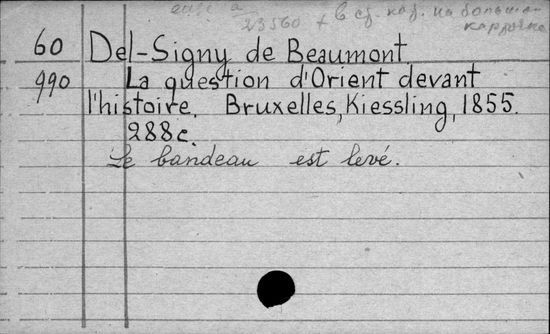 23560 + в сз. каз. на большой
карточке
60 Del-Signy de Beaumont
990 La question d'Orient devant
l'histoire. Bruxelles, Kiessling, 1855.
288c.
Le bandeau est levé.